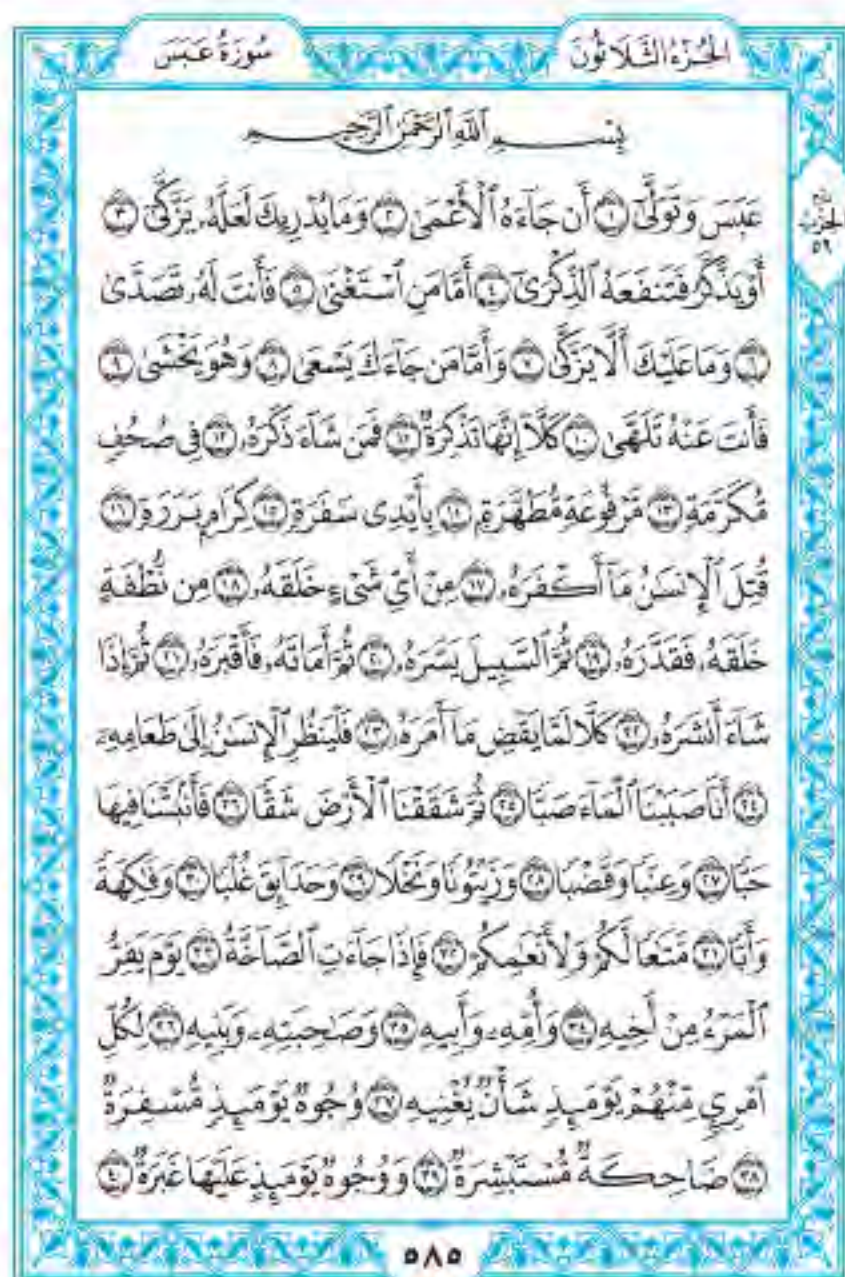 الجُزْءُ الثَّلَاثُونَ
سُورَةُ عَبَسَ
بِسْمِ ٱللَّهِ ٱلرَّحْمَٰنِ ٱلرَّحِيمِ
عَبَسَ وَتَوَلَّىٰٓ ١ أَن جَآءَهُ ٱلْأَعْمَىٰ ٢ وَمَا يُدْرِيكَ لَعَلَّهُۥ يَزَّكَّىٰٓ ٣
أَوْ يَذَّكَّرُ فَتَنفَعَهُ ٱلذِّكْرَىٰٓ ٤ أَمَّا مَنِ ٱسْتَغْنَىٰ ٥ فَأَنتَ لَهُۥ تَصَدَّىٰ
٦ وَمَا عَلَيْكَ أَلَّا يَزَّكَّىٰ ٧ وَأَمَّا مَن جَآءَكَ يَسْعَىٰ ٨ وَهُوَ يَخْشَىٰ ٩
فَأَنتَ عَنْهُ تَلَهَّىٰ ١٠ كَلَّآ إِنَّهَا تَذْكِرَةٌ ١١ فَمَن شَآءَ ذَكَرَهُۥ ١٢ فِى صُحُفٍ
مُّكَرَّمَةٍ ١٣ مَّرْفُوعَةٍ مُّطَهَّرَةٍۭ ١٤ بِأَيْدِى سَفَرَةٍ ١٥ كِرَامٍۭ بَرَرَةٍ ١٦
قُتِلَ ٱلْإِنسَٰنُ مَآ أَكْفَرَهُۥ ١٧ مِنْ أَىِّ شَىْءٍ خَلَقَهُۥ ١٨ مِن نُّطْفَةٍ
خَلَقَهُۥ فَقَدَّرَهُۥ ١٩ ثُمَّ ٱلسَّبِيلَ يَسَّرَهُۥ ٢٠ ثُمَّ أَمَاتَهُۥ فَأَقْبَرَهُۥ ٢١ ثُمَّ إِذَا
شَآءَ أَنشَرَهُۥ ٢٢ كَلَّا لَمَّا يَقْضِ مَآ أَمَرَهُۥ ٢٣ فَلْيَنظُرِ ٱلْإِنسَٰنُ إِلَىٰ طَعَامِهِۦٓ
٢٤ أَنَّا صَبَبْنَا ٱلْمَآءَ صَبًّا ٢٥ ثُمَّ شَقَقْنَا ٱلْأَرْضَ شَقًّا ٢٦ فَأَنۢبَتْنَا فِيهَا
حَبًّا ٢٧ وَعِنَبًا وَقَضْبًا ٢٨ وَزَيْتُونًا وَنَخْلًا ٢٩ وَحَدَآئِقَ غُلْبًا ٣٠ وَفَٰكِهَةً
وَأَبًّا ٣١ مَّتَٰعًا لَّكُمْ وَلِأَنْعَٰمِكُمْ ٣٢ فَإِذَا جَآءَتِ ٱلصَّآخَّةُ ٣٣ يَوْمَ يَفِرُّ
ٱلْمَرْءُ مِنْ أَخِيهِ ٣٤ وَأُمِّهِۦ وَأَبِيهِ ٣٥ وَصَٰحِبَتِهِۦ وَبَنِيهِ ٣٦ لِكُلِّ
ٱمْرِئٍ مِّنْهُمْ يَوْمَئِذٍ شَأْنٌ يُغْنِيهِ ٣٧ وُجُوهٌ يَوْمَئِذٍ مُّسْفِرَةٌ
٣٨ ضَاحِكَةٌ مُّسْتَبْشِرَةٌ ٣٩ وَوُجُوهٌ يَوْمَئِذٍ عَلَيْهَا غَبَرَةٌ ٤٠
الحِزْب
٥٩
٥٨٥